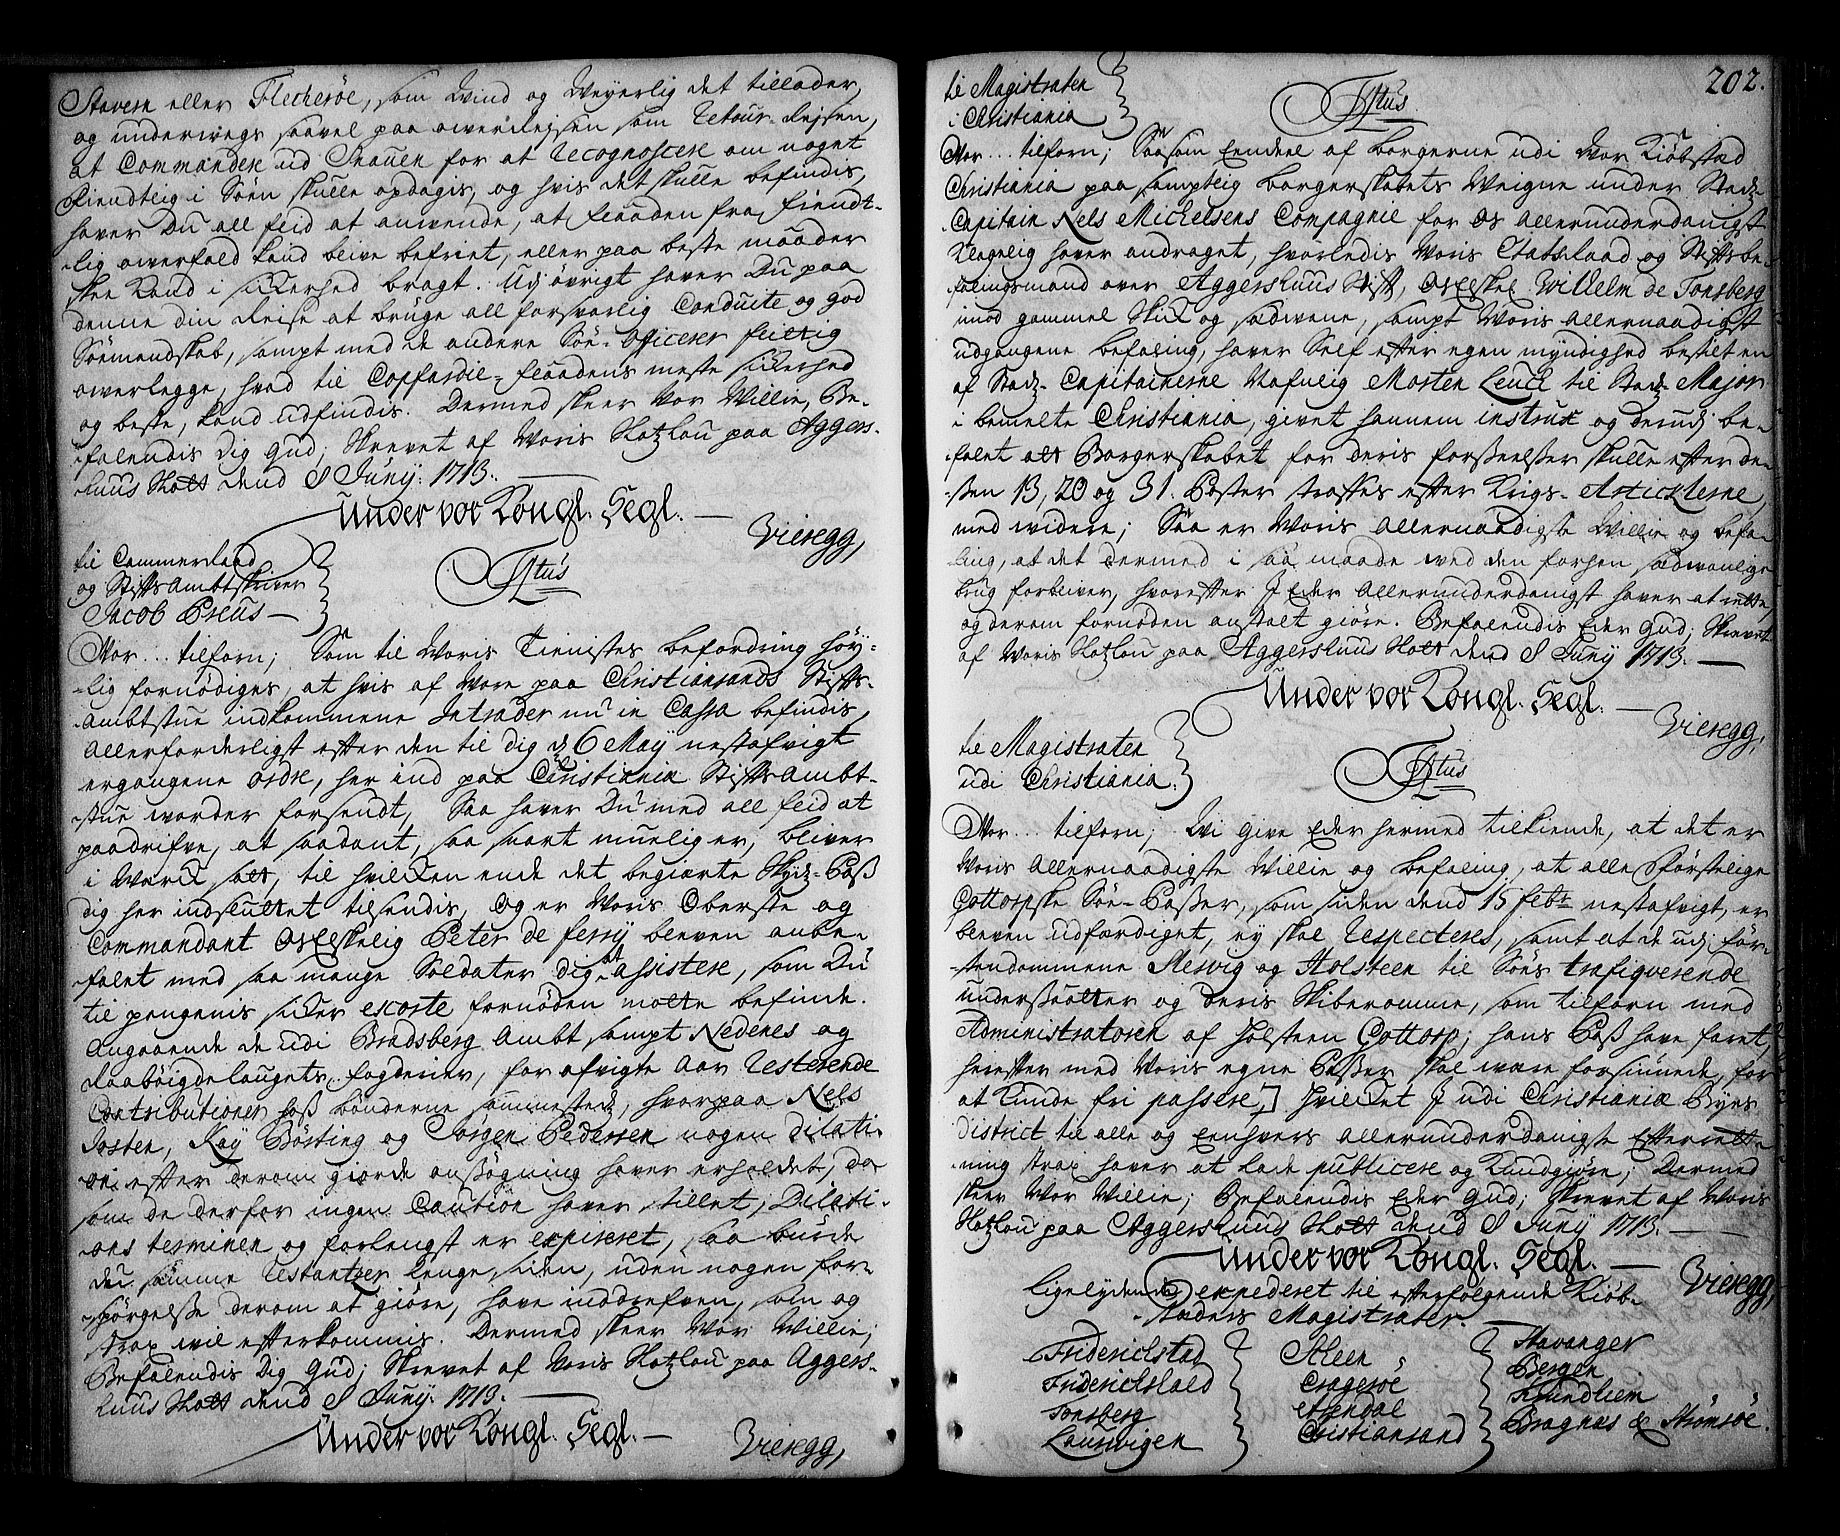 Stavern eller Fleckerøe, som Wind og Weyerlig det tillader,
og underweygs saavel paa owerreysen som Retour-Reysen,
at Commandere ud Snauen for at Recognoscere om noget
Fiendtlig i Søen skulle opdagis, og hvis det skulle befindis,
hawer Du all flid at anwende, at flaaden fra fiendt-
-lig owerfald kand blive befriet, eller paa beste maader
skee kand i sickerhed bragt. Udj øvrigt hawer Du paa
denne din Reise at bruge all forsvarlig Conduite og god
Søemandskab, sampt med de andere Søe-Officerer flittig
owerlegge, hvad til Copfardie-flaadens meste sickerhed
og beste, kand udfindis. Dermed skeer Vor Willie, Be-
-falendis Dig Gud; Skrevet af Woris Slotzlou paa Aggers-
-huus Slott dend 8 Junij: 1713.
Under vor Kongl. Segl.
Vieregg,
til Cammerraad
og StiftsAmbtskriver
Jacob Preus
Ttus
Wor... tilforn; Som til Woris Tienistes befordring høy-
-lig fornødiges, at hvis af Wore paa Christiansands Stifts-
-Ambtstue indkommene Intrader nu in Cassa befindis,
allerforderligst efter den til dig d 6 Maij nestafvigt
ergangene ordre, her ind paa Christiania StiftsAmbt-
-stue worder forsendt, Saa hawer Du med all flid at
paadrifve, at saadant, saa snart mueligt er, bliver
i Werck satt, til hvilcken ende det begierte Skydz-Pass
dig her indsluttet tilsendis, og er Woris Oberste og
Commandant Os Elskelig Peter de ferry bleven anbe-
-falet med saa mange Soldater dig at assistere, som Du
til pengenis sicker escorte fornøden motte befinde.
Angaaende de udi Bradsberg Ambt, sampt Nedenes og
Raabøigdelaugets fogderier, for afvigte Aar Resterende
Contributioner hos bønderne sammesteds, hvorpaa Nels
Josten, Kay Børting og Jørgen Pedersen nogen dilati-
-on efter derom giorde ansøgning hawer erholdet, da
som de derfor ingen Caution hawer stillet, Dilati-
-ons terminen og forlengst er expireret, saa burde
du samme Restantzer lenge siden, uden nogen for-
-spørgelse derom at giøre, have inddrefven, som og
strax wil efterkommis. Dermed skeer Wor Willie;
Befalendis Dig Gud; Skrevet af Woris Slotzlou paa Aggers-
-huus Slott dend 8 Junij: 1713.
Under vor Kongl. Segl.
Vieregg,
202.
til Magistraten
i Christiania
Ttus
Wor... tilforn; Saasom Eendeel af borgerne udi Vor Kiøbstad
Christiania paa samptlig borgerskabets Weigne under Stadz-
-Capitain Nels Michelsens Compagnie for os allerunderdanigst
klagelig hawer andraget, hvorledis Woris Etatsraad og Stifts be-
-falingsmand over Aggershuus Stift, Os Elskel. Wilhelm de Tonsberg
imod gammel Skick og sædwene, sampt Woris allernaadigst
udgangene befaling, hawer Self efter egen myndighed bestilt en
af Stadz-Capitainerne Nafnlig Morten Leuch til Stadz Major
i bemelte Christiania, givet hannem instrux og derudj be-
-falet att Borgerskabet for deris forseelser skulle efter de-
-sen 13, 20 og 31. Poster straffes efter Krigs-Articklerne,
med widere; Saa er Woris allernaadigste Willie og befa-
-ling, at det dermed i saa maade wed den forhen sædwanlige
brug forbliver, hvorefter J Eder allerunderdanigst hawer at rette,
og derom fornøden anstalt giøre. Befalendis Eder Gud; Skrevet
af Woris Slotzlou paa Aggershuus Slott dend 8 Junij 1713.
Under vor Kongl. Segl.
Vieregg,
til Magistraten
udi Christiania.
Ttus
Wor... tilforn; Wi give Eder hermed tilkiende, at det er
Woris allernaadigste Willie og befaling, at alle Førstelige
Gottorpske Søe-Passer, som siden dend 15 febr nestafvigt, er
bleven udfærdiget, ey skal Respecteres, samt at de udj før-
-stendommene Slesvig og Holsteen til Søes trafiqverende
undersaatter og deris Skiberomme, som tilforn med
Administratoren af Holsteen Gottorp, hans Pass have faret,
herefter med Woris egne Passer skal ware forsiunede, for
at kunde fri passere, hvilcket J udi Christianiæ Byes
district til alle og Eenhvers allerunderdanigste Efterret-
-ning strax hawer at lade publicere og kundgiøre; Dermed
skeer Wor Willie; Befalendis Eder Gud; Skrevet af Woris
Slotzlou paa Aggershuus Slott dend 8 Junij 1713.
Under vor Kongl. Segl.
Vieregg,
Ligelydende expederet til efterfølgende Kiøb-
-stæders Magistrater.
Friderichstad
Friderichshald
Tonsberg
Laurwigen
Skeen
Cragerøe
Arendal
Christiansand
Stavanger
Bergen
Trundhiem
Bragnæs & Strømsøe.